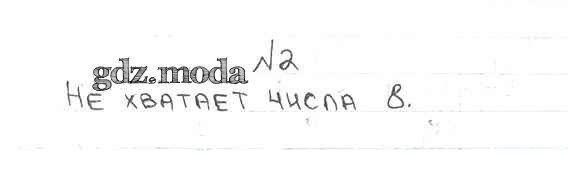 gdz.moda №2
Не хватает числа 8.